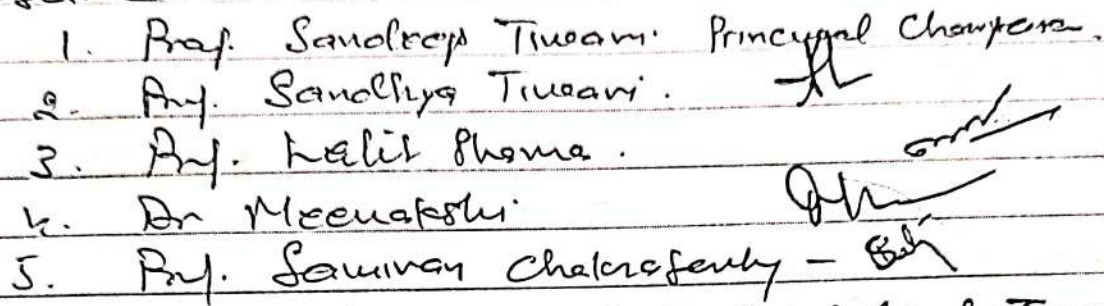 1. Prof. Sandeep Tiwari. Principal Chairperson.
2. Prof. Sandhya Tiwari.
3. Prof. Lalit Sharma.
4. Dr Meenakshi
5. Prof. Samiran Chakraborty -